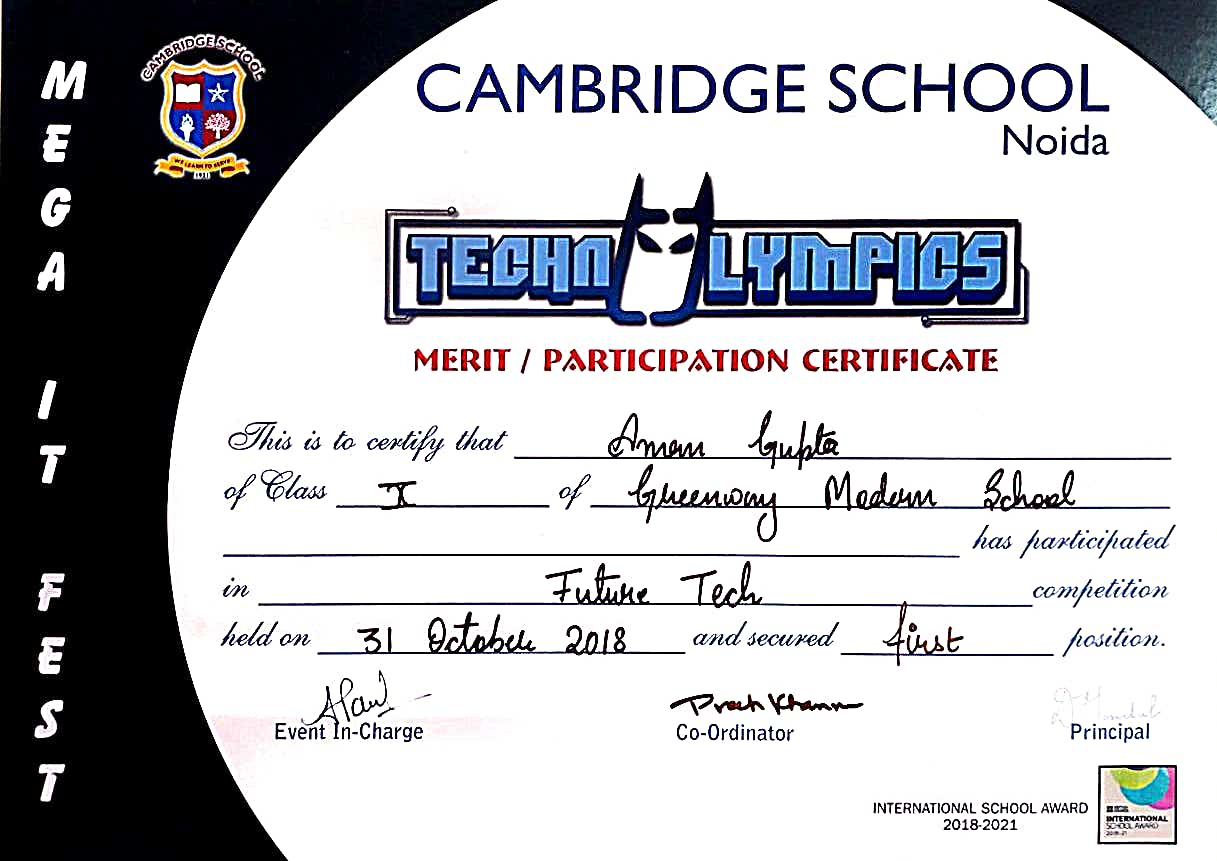 MEGA IT FEST
CAMBRIDGE SCHOOL
WE LEARN TO SERVE
CAMBRIDGE SCHOOL
Noida
TECHNOLYMPICS
MERIT / PARTICIPATION CERTIFICATE
This is to certify that Aman Gupta
of Class X of Greenway Modern School
has participated
in Future Tech competition
held on 31 October 2018 and secured first position.
Event In-Charge Co-Ordinator Principal
INTERNATIONAL SCHOOL AWARD
2018-2021
INTERNATIONAL
SCHOOL AWARD